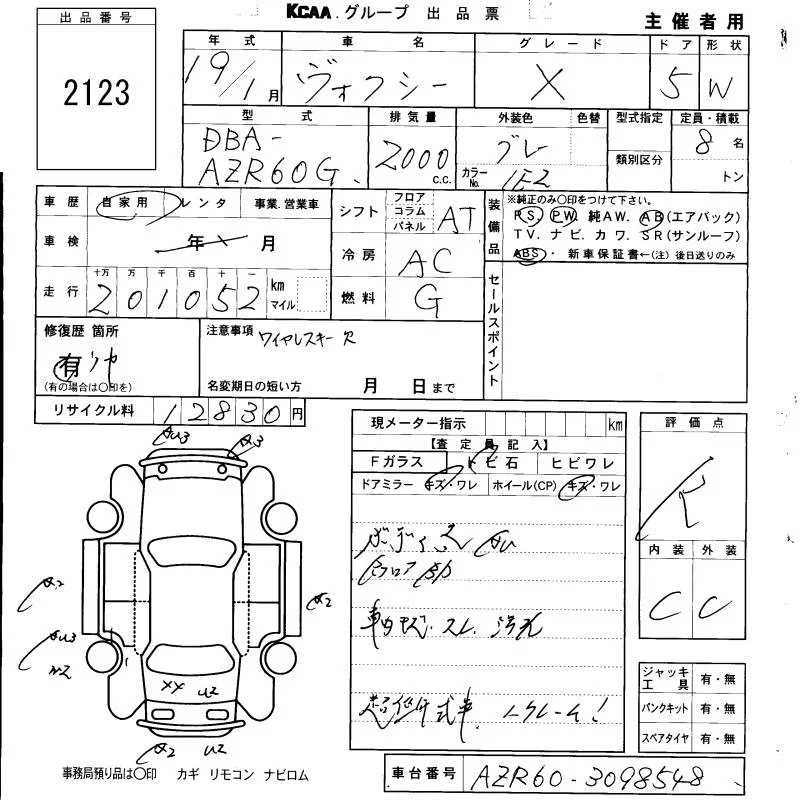 出品番号
2123
KCAA グループ 出品票
主催者用
年式 車名 グレード ドア 形状
19/1月 ヴォクシー X 5 W
型式 排気量 外装色 色替 型式指定 定員・積載
DBA-AZR60G 2000 C.C. グレー 類別区分 8名
カラーNo. 1E2 トン
車歴 自家用 レンタ 事業.営業車
シフト フロア コラム パネル AT
装備品 ※純正のみ○印をつけて下さい。
PS. PW. 純AW. AB(エアバック)
TV. ナビ. カワ. SR(サンルーフ)
ABS・新車保証書←(注) 後日送りのみ
車検 年 月
冷房 AC
走行 十万 万 千 百 十 一
201052 km マイル
燃料 G
セールスポイント
修復歴 箇所
有
(有の場合は○印を)
注意事項 ワイヤレスキー
名変期日の短い方 月 日まで
リサイクル料 12830円
現メーター指示 km
【査定員記入】
Fガラス トビ石 ヒビワレ
ドアミラー キズ・ワレ ホイール(CP) キズ・ワレ
評価点
R
内装 外装
C C
AU3
A3
A2
AU3
A2
XX U2
A2 U2
ジャッキ工具 有・無
パンクキット 有・無
スペアタイヤ 有・無
事務局預り品は○印 カギ リモコン ナビロム
車台番号 AZR60-3098548